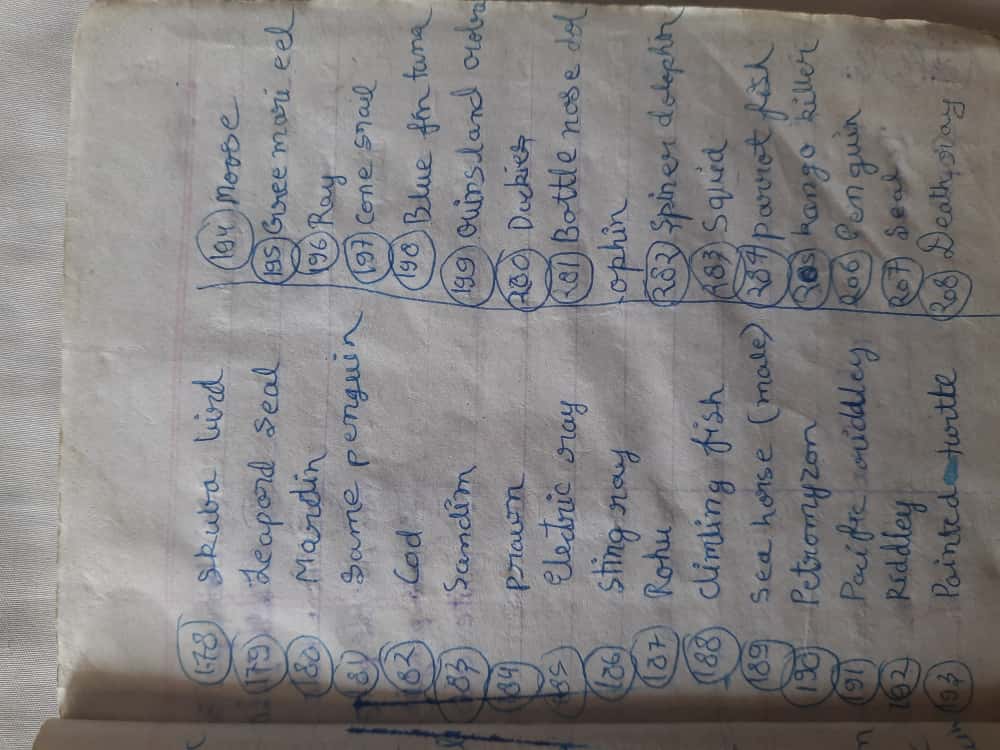 178 Skuba bird
179 Leapord Seal
180 Mardin
181 Same penguin
182 Cod
183 Sandim
184 prawn
185 Electric ray
186 Sting ray
187 Rohu
188 Climbing fish
189 Sea horse (male)
190 Petromyzon
191 Pacific riddley
192 Riddley
193 Painted turtle
194 Moose
195 Gree mori eel
196 Ray
197 Cone snail
198 Blue fin tuna
199 Quinsland
200
201 Bottle nose dol
ophin
202 Spiner dolophin
203 Squid
204 parrot fish
205 kango killer
206 Penguin
207 Seal
208 Death ray